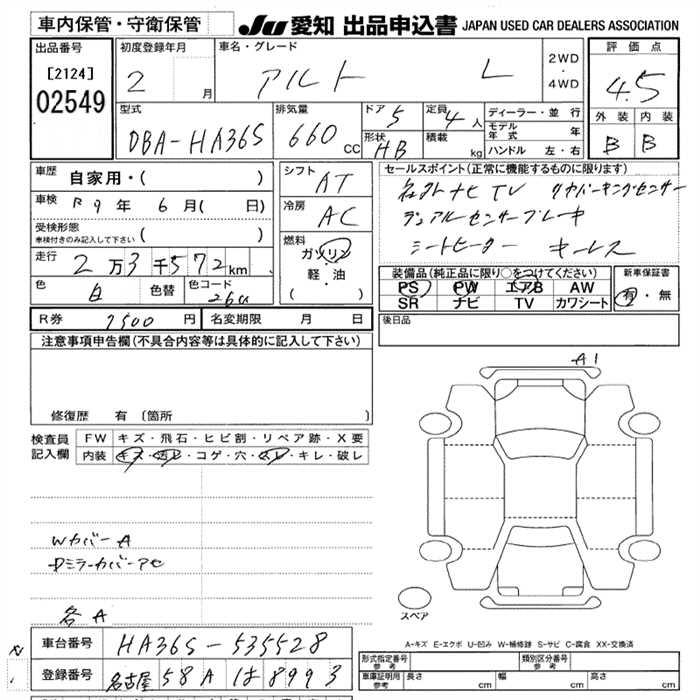 車内保管・守衛保管
JU 愛知 出品申込書 JAPAN USED CAR DEALERS ASSOCIATION
出品番号
[2124]
02549
初度登録年月
2 月
車名・グレード
アルト L
2WD
・
4WD
評価点
4.5
外装 内装
B B
型式
DBA-HA36S
排気量
660 cc
ドア 5
形状 HB
定員 4 人
積載 kg
ディーラー・並行
モデル年式 年
ハンドル 左・右
車歴 自家用・( )
車検 R9 年 6 月( 日)
受検形態
車検付きのみ記入して下さい ( )
走行 2万3千572km
色 白 色替 色コード 26U
シフト AT
冷房 AC
燃料
ガソリン
軽・油
( )
セールスポイント(正常に機能するものに限ります)
社外ナビ TV リヤパーキングセンサー
デュアルセンサーブレーキ
シートヒーター キーレス
装備品(純正品に限り○をつけてください)
PS PW エアB AW
SR ナビ TV カワシート
新車保証書
有・無
R券 7500 円 名変期限 月 日
後日品
注意事項申告欄(不具合内容等は具体的に記入して下さい)
修復歴 有 (箇所
検査員
記入欄
FW キズ・飛石・ヒビ割・リペア跡・X要
内装 キズ・汚レ・コゲ・穴・スレ・キレ・破レ
A1
Wカバー A
Dミラーカバーアセ
各A
スペア
A-キズ E-エクボ U-凹み W-補修跡 S-サビ C-腐食 XX-交換済
車台番号 HA36S-535528
登録番号 名古屋 58A は 8993
形式指定番号
参考
類別区分番号
参考
車庫証明用
参考
長さ cm 幅 cm 高さ cm